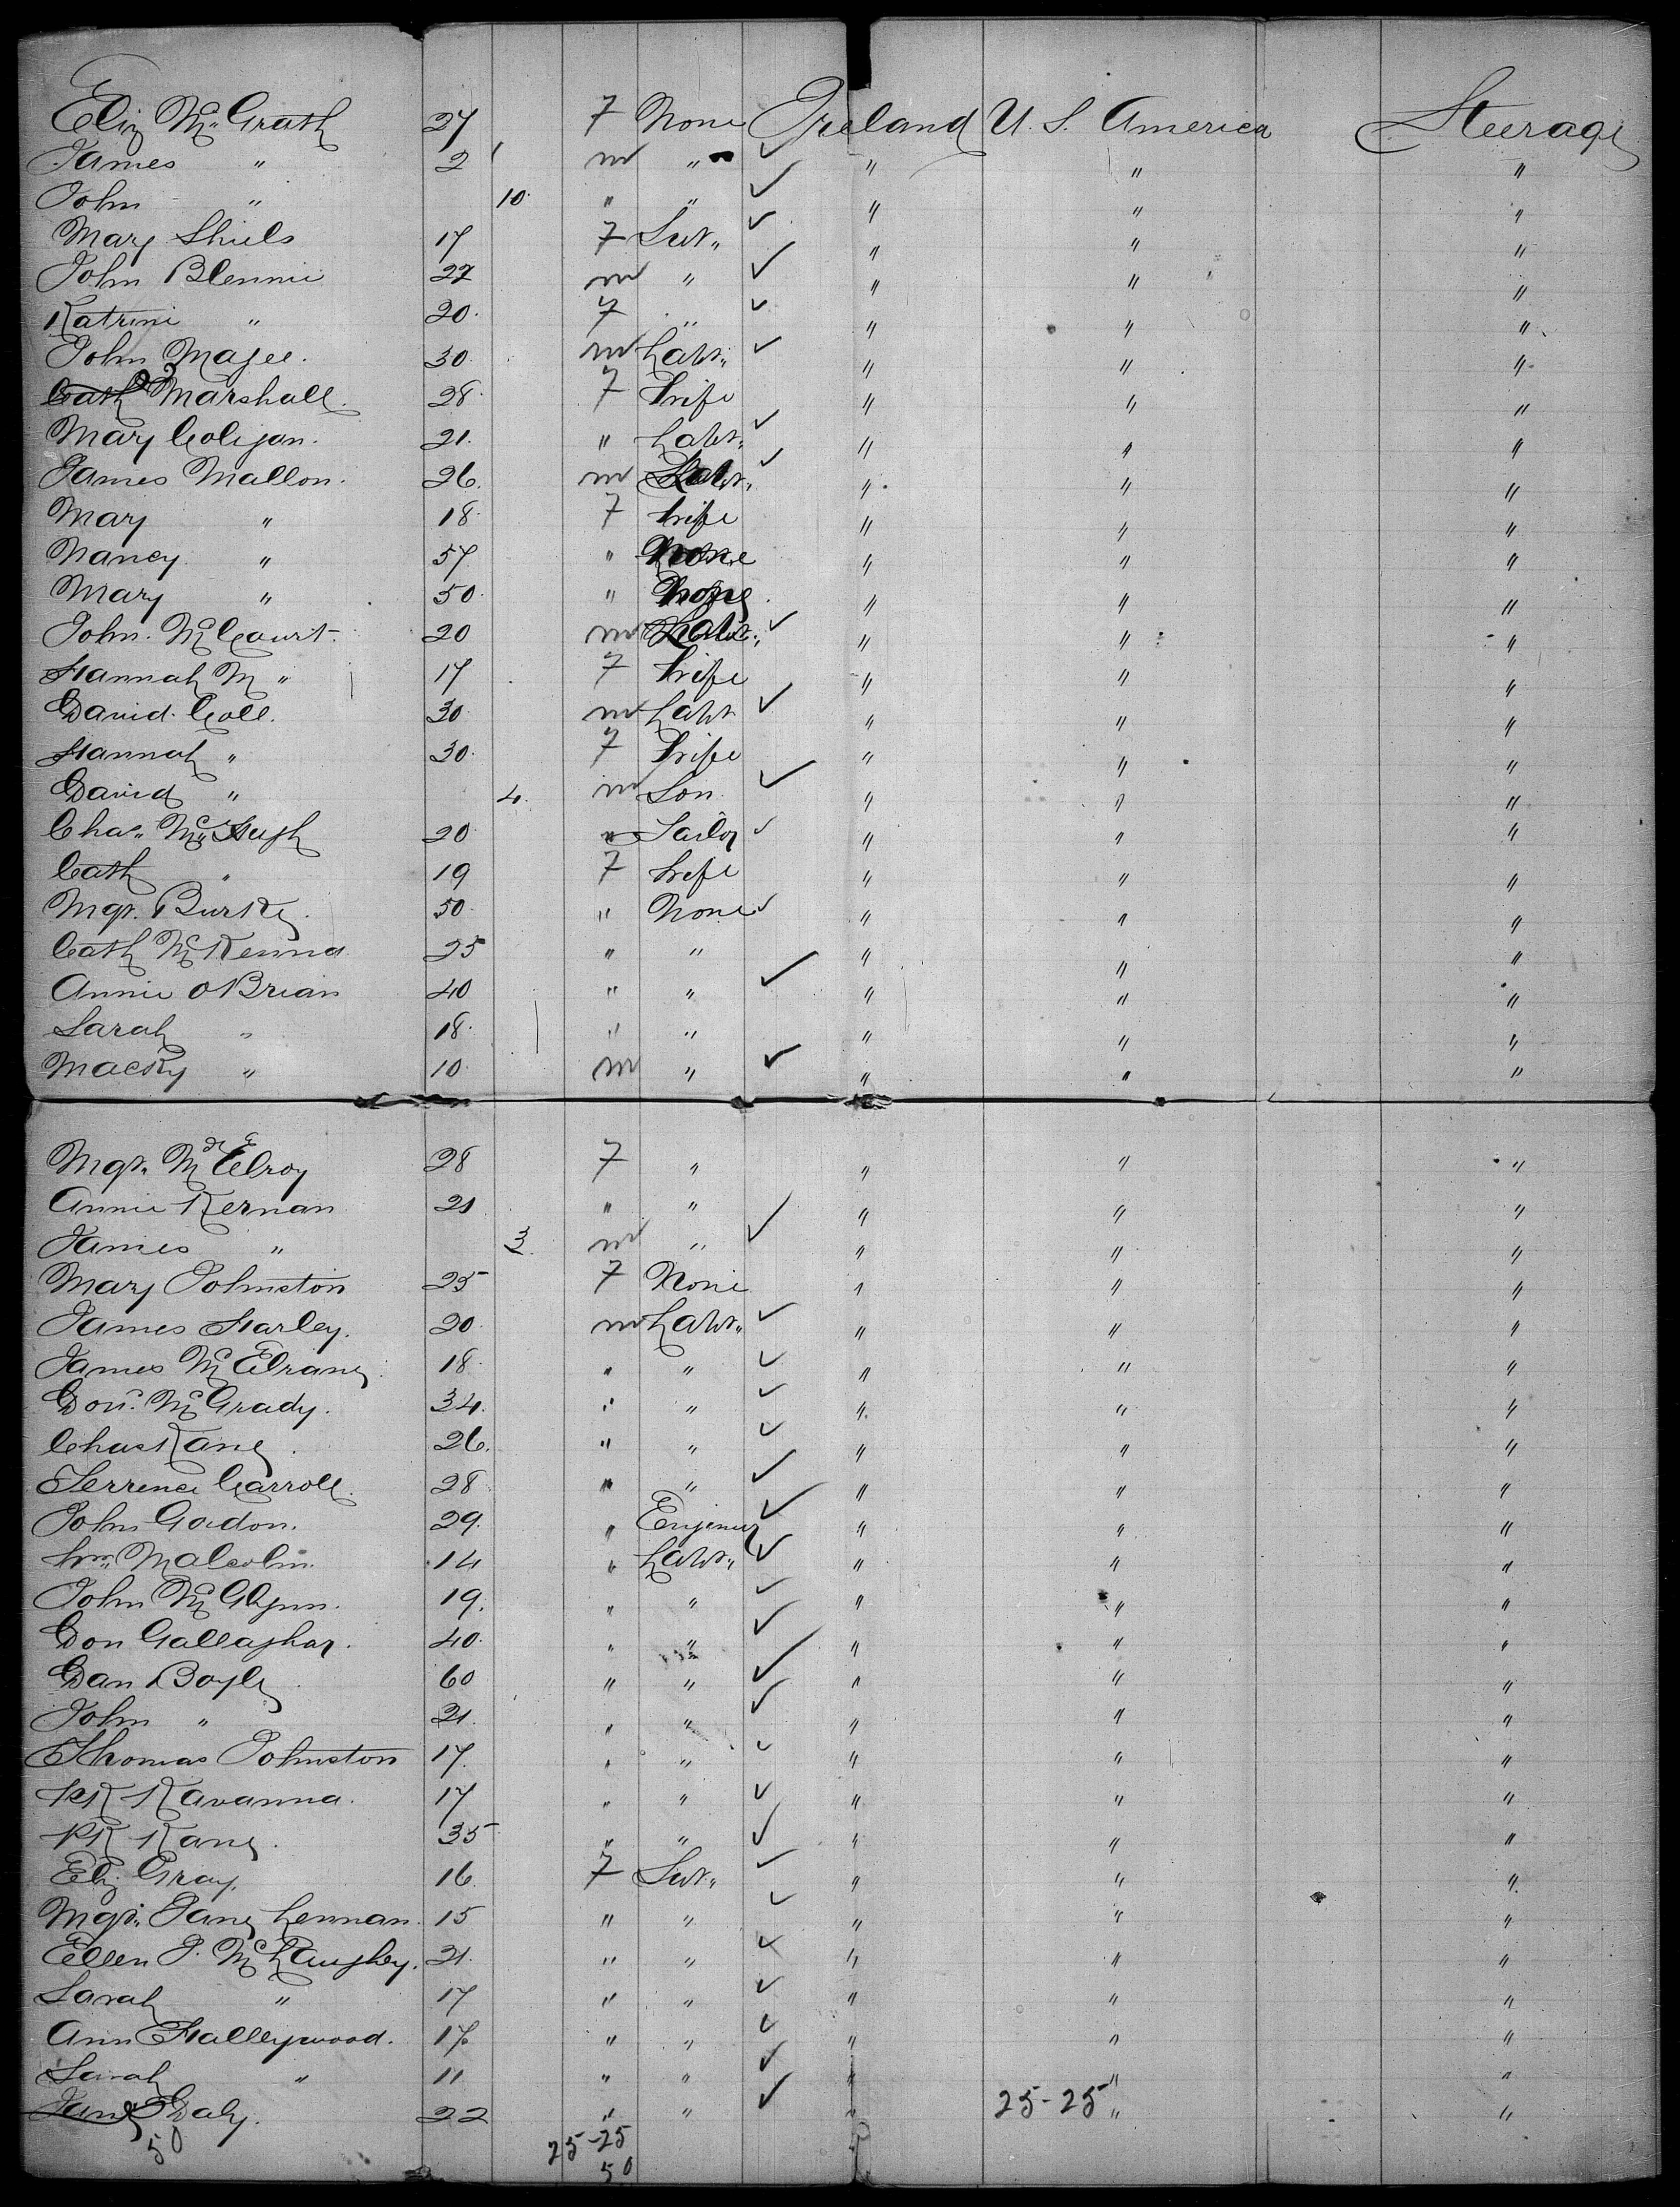 Eliz McGrath 27 7 None Ireland U. S. America Steerage
James " 2 m " " " "
John " 10 " " " " "
Mary Shiels 17 7 Servt " " " "
John Blennie 27 m " " " "
Katrine " 20 7 " " " "
John Magee 30 m Labr " " "
Cath Marshall 28 7 Wife " " "
Mary Coligan 21 " Labr " " "
James Mallon 26 m Labr " " "
Mary " 18 7 Wife " " "
Nancy " 57 " None " " "
Mary " 50 " None " " "
John McCourt 20 m Labr " " "
Hannah M " 17 7 Wife " " "
David Coll 30 m Labr " " "
Hannah " 30 7 Wife " " "
David " 4 m Son " " "
Chas McHugh 20 " Tailor " " "
Cath " 19 7 Wife " " "
Mgt. Burke 50 " None " " "
Cath McKenna 25 " " " " "
Annie OBrian 40 " " " " "
Sarah " 18 " " " " "
Macky " 10 m " " " "
Mgt. McElroy 28 7 " " " "
Annie Kernan 21 " " " " "
James " 3 m " " " "
Mary Johnston 25 7 None " " "
James Harley 20 m Labr " " "
James McElrane 18 " " " " "
Don. McGrady 34 " " " " "
Chas Kane 26 " " " " "
Terrence Carroll 28 " " " " "
John Gordon 29 " Engineer " " "
Wm Malcolm 14 " Labr " " "
John McGlynn 19 " " " " "
Don Gallaghar 40 " " " " "
Dan Boyle 60 " " " " "
John " 21 " " " " "
Thomas Johnston 17 " " " " "
PK Kavanna 17 " " " " "
PK Kane 35 " " " " "
Eliz Gray 16 7 Servt " " "
Mgt. Jane Lennan 15 " " " " "
Ellen J. McLaughey 21 " " " " "
Sarah " 17 " " " " "
Ann Halleywood 17 " " " " "
Sarah " 11 " " " " "
Jane Daly 22 " " " 25-25 " "
50 25-25
50